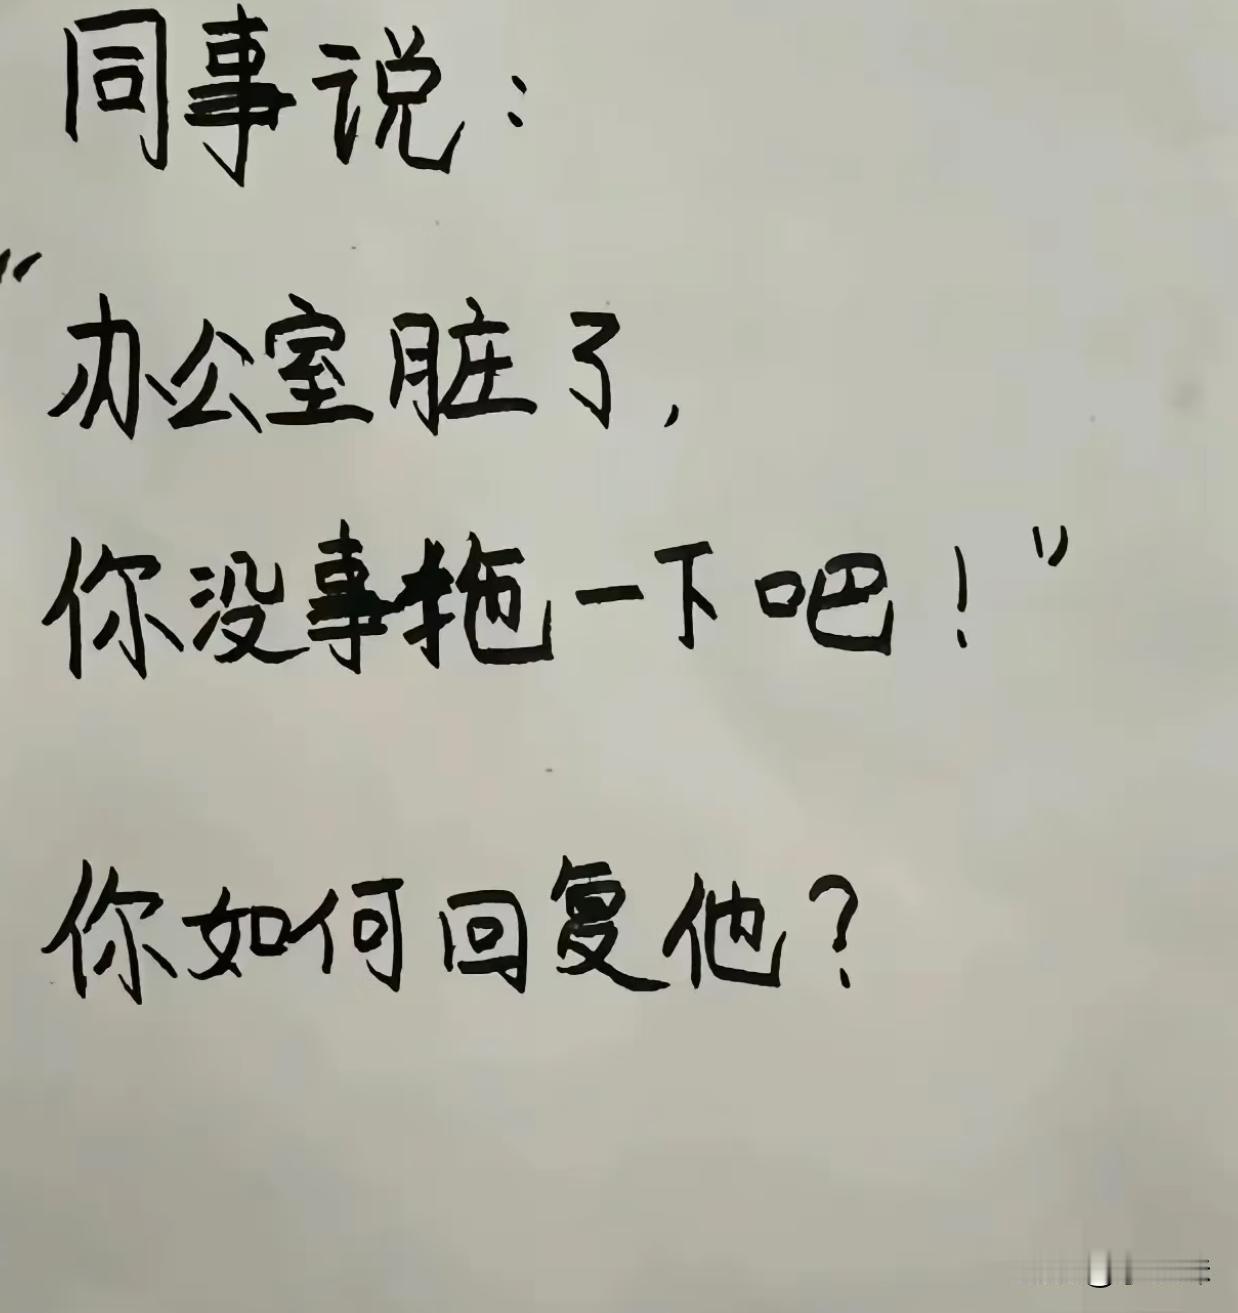 同事说：
“办公室脏了，
你没事拖一下吧！”
你如何回复他？